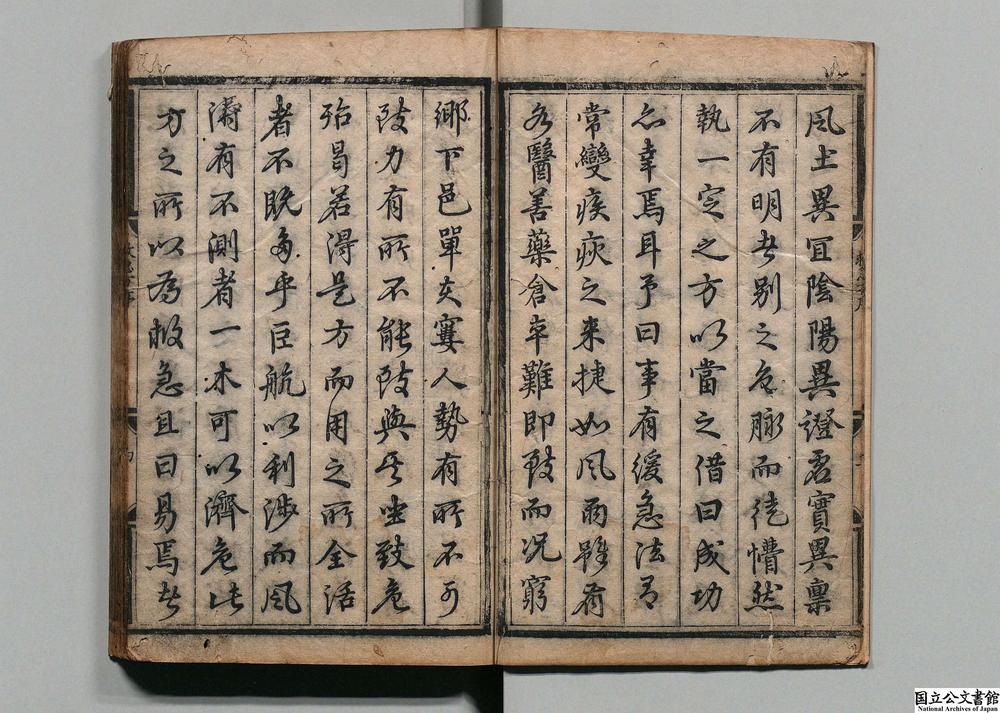 風土異宜陰陽異證虛實異稟
不有明者別之色脉而徒懵然
執一定之方以當之借曰成功
亦幸焉耳予曰事有緩急法有
常變疾疢之来捷如風雨雖有
名醫善藥倉卒難即致而况窮
鄉下邑單夫窶人勢有所不可
致力有所不能致與其坐致危
殆曷若得是方而用之所全活
者不既多乎巨航以利涉而風
濤有不測者一木可以濟危此
方之所以為救急且曰易焉者
国立公文書館
National Archives of Japan